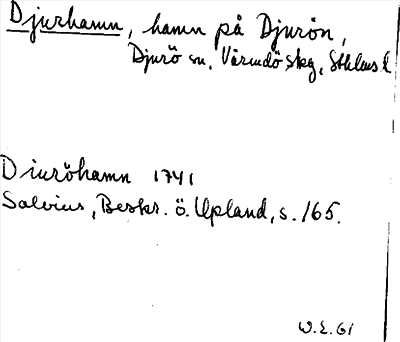 Djurhamn, hamn på Djurön,
Djurö sn. Värmdö skg, Sthlms l.
Diuröhamn 1741
Salvius, Beskr. ö. Upland, s. 165.
W.E. 61